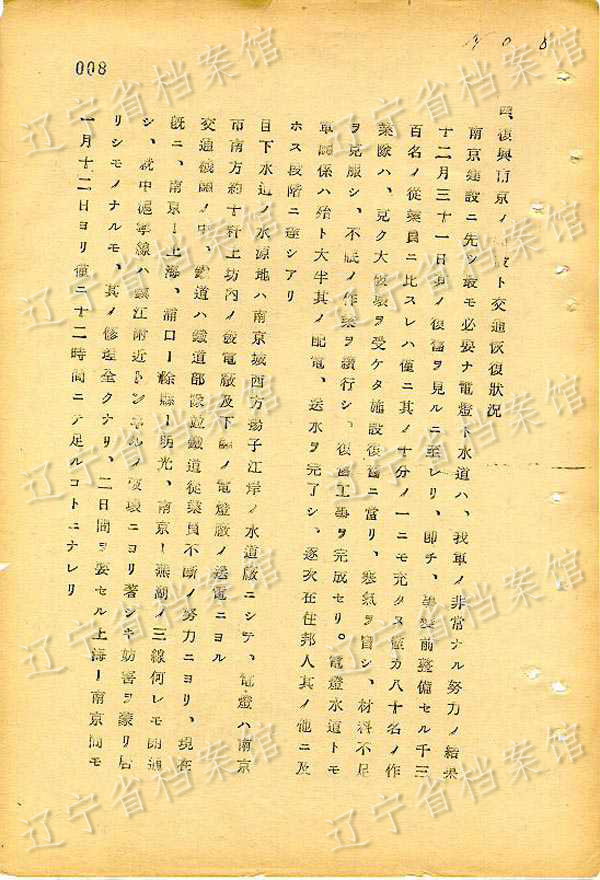 008
四、復興南京ノ建設ト交通恢復狀況
南京建設ニ先ンシ最モ必要ナ電燈ト水道ハ、我軍ノ非常ナル努力ノ結果
十二月三十一日頃ノ復舊ヲ見ルニ至レリ、卽チ、事變前整備セル千三
百名ノ從業員ニ比スレハ僅ニ其ノ十分ノ一ニモ充タス僅カ八十名ノ作
業隊ハ、克ク大破壞ヲ受ケタ施設復舊ニ當リ、寒氣ヲ冒シ、材料不足
ヲ克服シ、不眠ノ作業ヲ續行シ、復舊工事ヲ完成セリ。電燈水道トモ
軍關係ハ殆ト大半其ノ配電、送水ヲ完了シ、逐次在住邦人其ノ他ニ及
ホス段階ニ達シアリ
目下水道ノ水源地ハ南京城西方揚子江岸ノ水道廠ニシテ、電燈ハ南京
市南方約十粁上坊內ノ發電廠及下關ノ電燈廠ノ送電ニヨル
交通機關ノ中、鐵道ハ鐵道部隊竝鐵道從業員不斷ノ努力ニヨリ、現在
旣ニ、南京ー上海、浦口ー除縣ー明光、南京ー蕪湖ノ三線何レモ開通
シ、就中滬寧線ハ鎭江附近トンネルノ破壞ニヨリ著シキ妨害ヲ蒙リ居
リシモノナルモ、其ノ修理全クナリ、二日間ヲ要セル上海ー南京間モ
一月十二日ヨリ僅ニ十二時間ニテ足ルコトニナレリ
辽宁省档案馆